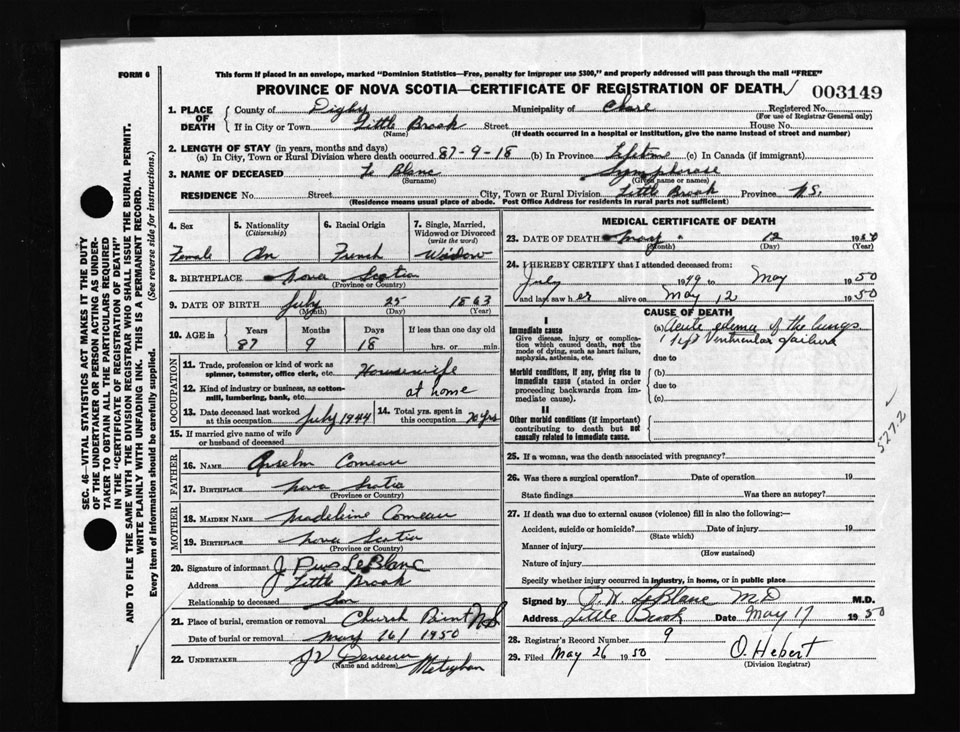 FORM 6
This form if placed in an envelope, marked "Dominion Statistics—Free, penalty for improper use $300," and properly addressed will pass through the mail "FREE"
PROVINCE OF NOVA SCOTIA—CERTIFICATE OF REGISTRATION OF DEATH 003149
1. PLACE OF DEATH County of Digby Municipality of Clare Registered No.
(For use of Registrar General only)
If in City or Town Little Brook Street House No.
(Name) (If death occurred in a hospital or institution, give the name instead of street and number)
2. LENGTH OF STAY (in years, months and days)
(a) In City, Town or Rural Division where death occurred 87-9-18 (b) In Province Lifetime (c) In Canada (if immigrant)
3. NAME OF DECEASED Le Blanc Symphorose
(Surname) (Given name or names)
RESIDENCE No. Street City, Town or Rural Division Little Brook Province N.S.
(Residence means usual place of abode. Post Office Address for residents in rural parts not sufficient)
4. Sex 5. Nationality (Citizenship) 6. Racial Origin 7. Single, Married, Widowed or Divorced (write the word)
Female French Widow
8. BIRTHPLACE Nova Scotia
(Province or Country)
9. DATE OF BIRTH July 25 1863
(Month) (Day) (Year)
10. AGE in Years Months Days If less than one day old
87 9 18 hrs. or min.
OCCUPATION
11. Trade, profession or kind of work as spinner, teamster, office clerk, etc. Housewife
12. Kind of industry or business, as cotton-mill, lumbering, bank, etc. at home
13. Date deceased last worked at this occupation July 1944 14. Total yrs. spent in this occupation 70 yrs
15. If married give name of wife or husband of deceased
FATHER
16. NAME Anselm Comeau
17. BIRTHPLACE Nova Scotia
(Province or Country)
MOTHER
18. MAIDEN NAME Madeleine Comeau
19. BIRTHPLACE Nova Scotia
(Province or Country)
20. Signature of informant J Pius LeBlanc
Address Little Brook
Relationship to deceased Son
21. Place of burial, cremation or removal Church Point N.S.
Date of burial or removal May 16/1950
22. UNDERTAKER Meteghan
(Name and address)
MEDICAL CERTIFICATE OF DEATH
23. DATE OF DEATH May 12 1950
(Month) (Day) (Year)
24. I HEREBY CERTIFY that I attended deceased from:
July 1949 to May 1950
and last saw her alive on May 12 1950
CAUSE OF DEATH
I
Immediate cause
Give disease, injury or complication which caused death, not the mode of dying, such as heart failure, asphyxia, asthenia, etc.
(a) Acute edema of the lungs
left Ventricular failure
due to
Morbid conditions, if any, giving rise to immediate cause (stated in order proceeding backwards from immediate cause).
(b)
due to
(c)
II
Other morbid conditions (if important) contributing to death but not causally related to immediate cause.
527.2
25. If a woman, was the death associated with pregnancy?
26. Was there a surgical operation? Date of operation 19
State findings Was there an autopsy?
27. If death was due to external causes (violence) fill in also the following:—
Accident, suicide or homicide? Date of injury 19
(State which)
Manner of injury
(How sustained)
Nature of injury
Specify whether injury occurred in industry, in home, or in public place
Signed by P. W. LeBlanc MD M.D.
Address Little Brook Date May 17 1950
28. Registrar's Record Number 9
29. Filed May 26 1950 O. Hebert
(Division Registrar)
SEC. 46—VITAL STATISTICS ACT MAKES IT THE DUTY
OF THE UNDERTAKER OR PERSON ACTING AS UNDER-
TAKER TO OBTAIN ALL THE PARTICULARS REQUIRED
IN THE "CERTIFICATE OF REGISTRATION OF DEATH"
AND TO FILE THE SAME WITH THE DIVISION REGISTRAR WHO SHALL ISSUE THE BURIAL PERMIT.
WRITE PLAINLY WITH UNFADING INK. THIS IS A PERMANENT RECORD.
Every item of information should be carefully supplied. (See reverse side for instructions.)